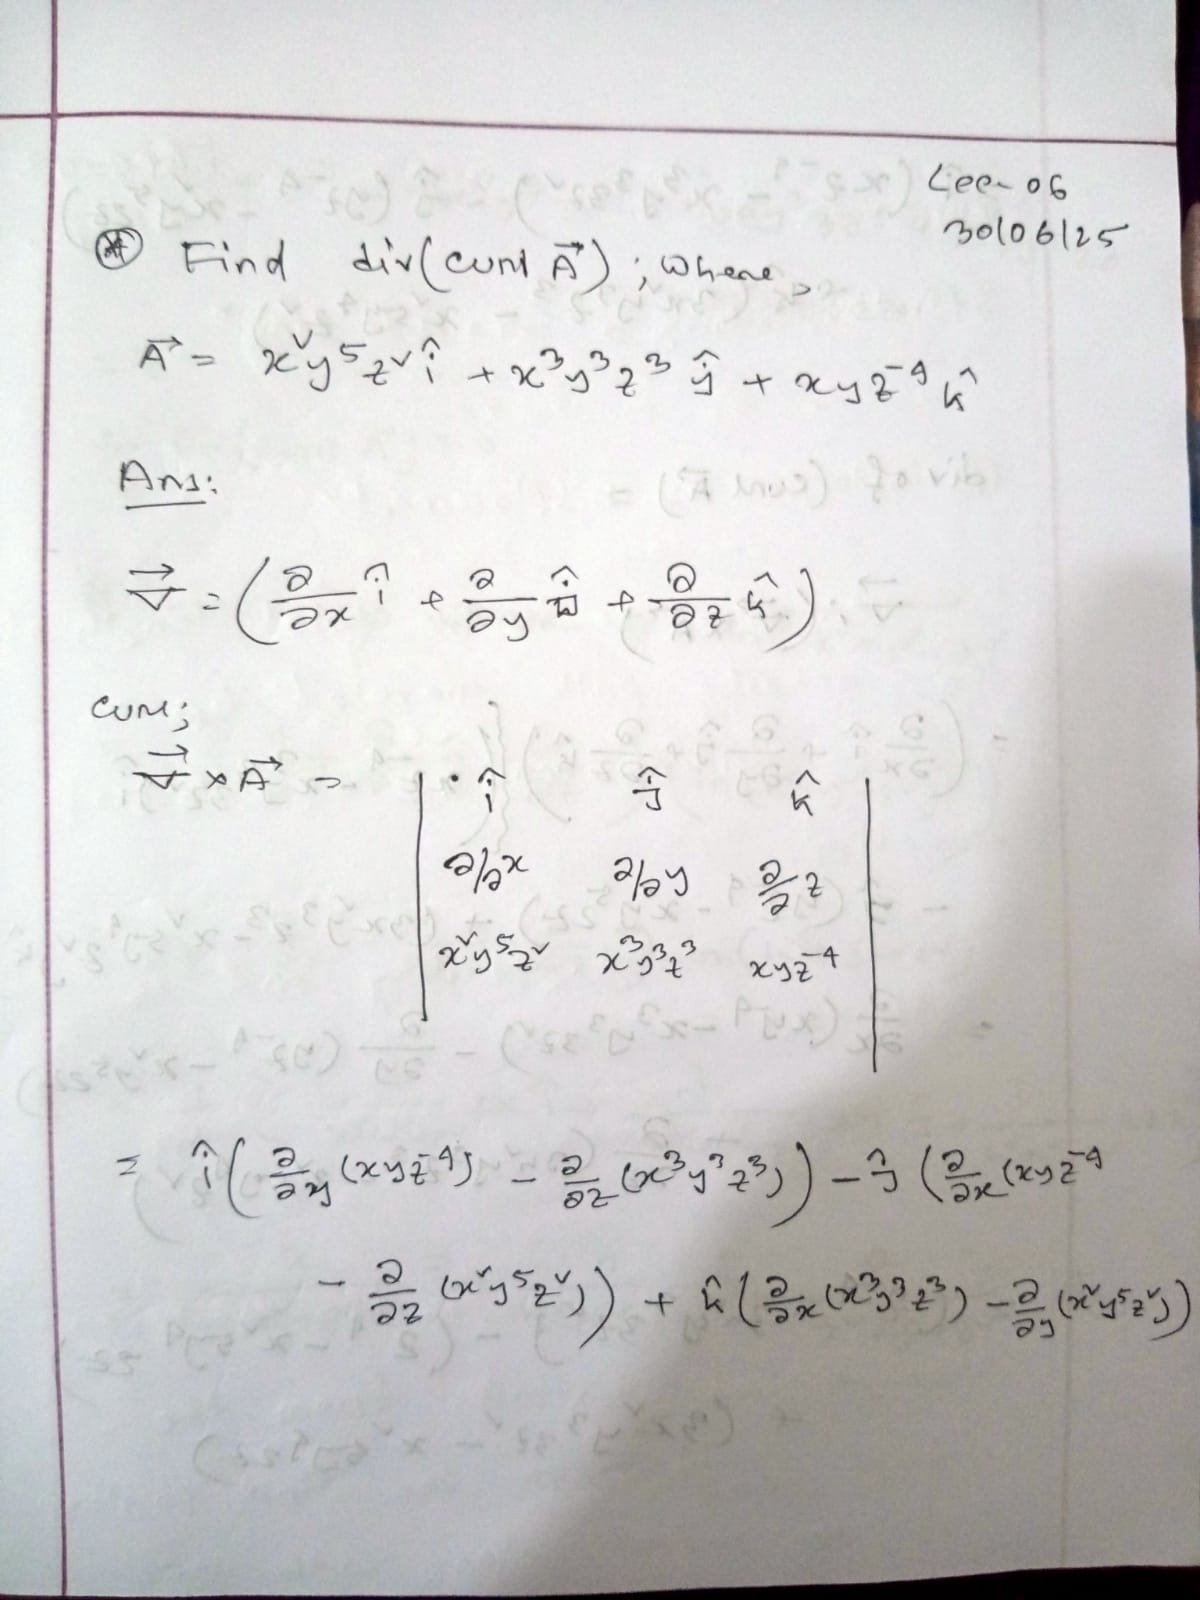 Lec-06
30/06/25
Find div(curl A⃗) ; where,
A⃗ = x²y⁵z² î + x³y³z³ ĵ + xyz⁻⁴ k̂
Ans:
∇⃗ = (∂/∂x î + ∂/∂y ĵ + ∂/∂z k̂)
curl;
∇⃗ × A⃗ = | î ĵ k̂ |
| ∂/∂x ∂/∂y ∂/∂z |
| x²y⁵z² x³y³z³ xyz⁻⁴ |
= î(∂/∂y (xyz⁻⁴) - ∂/∂z (x³y³z³)) - ĵ (∂/∂x (xyz⁻⁴
- ∂/∂z (x²y⁵z²)) + k̂ (∂/∂x (x³y³z³) - ∂/∂y (x²y⁵z²))